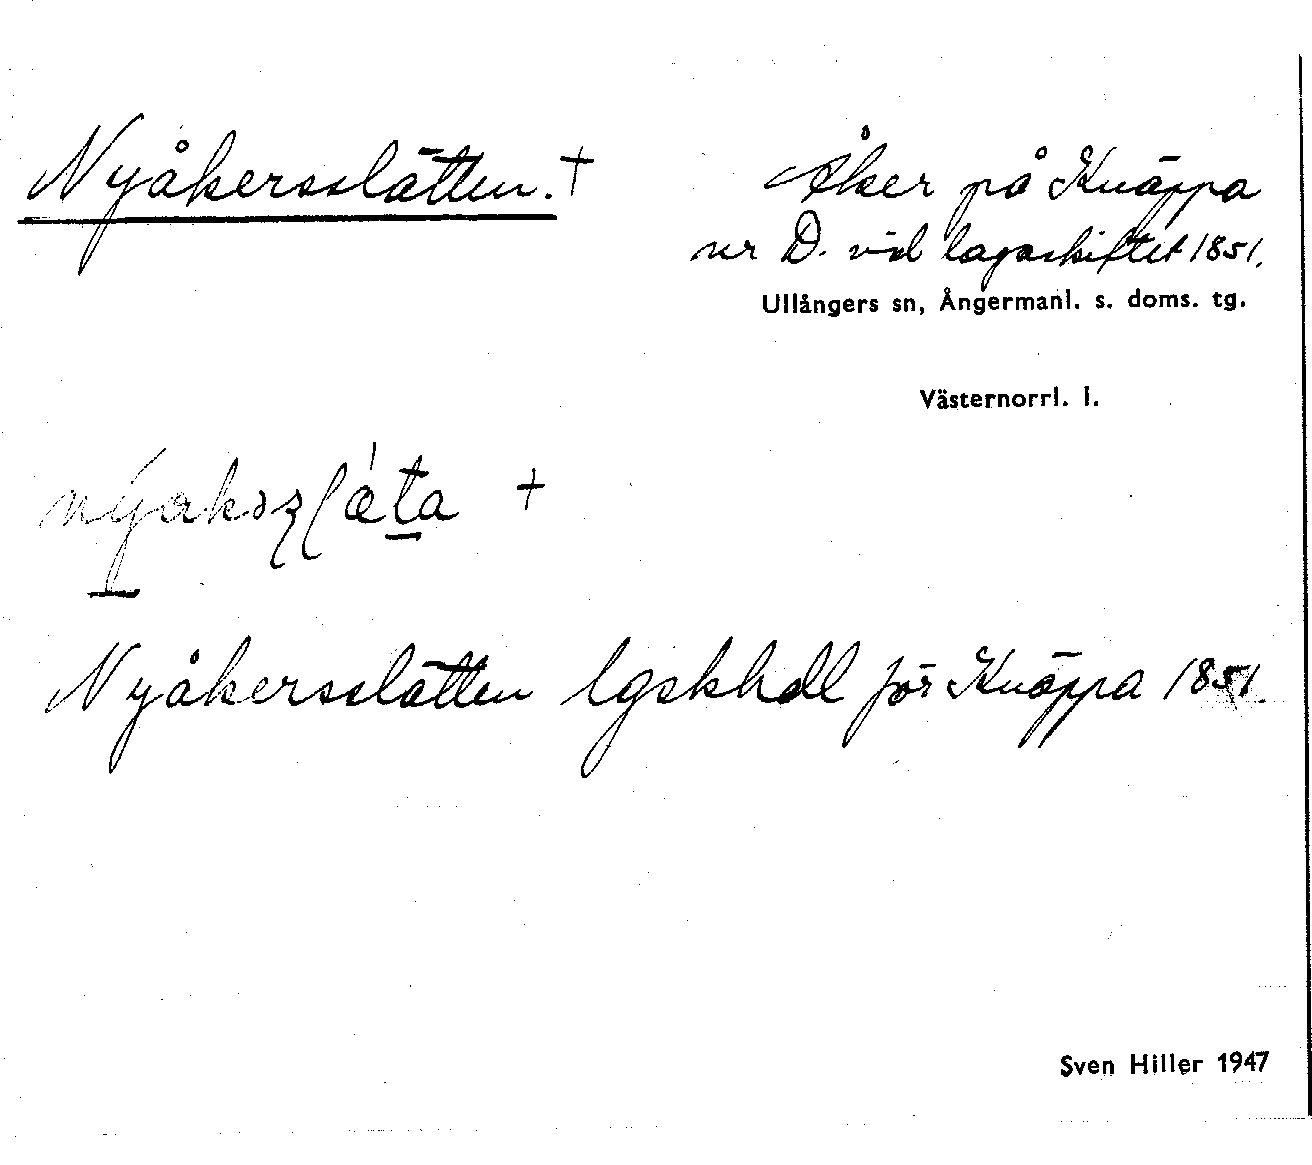 Nyåkersslätten. †
Åker på Knäppa
nr D. vid lagaskiftet 1851.
Ullångers sn, Ångermanl. s. doms. tg.
Västernorrl. l.
†
Nyåkersslätten lgskhdl för Knäppa 1851.
Sven Hiller 1947